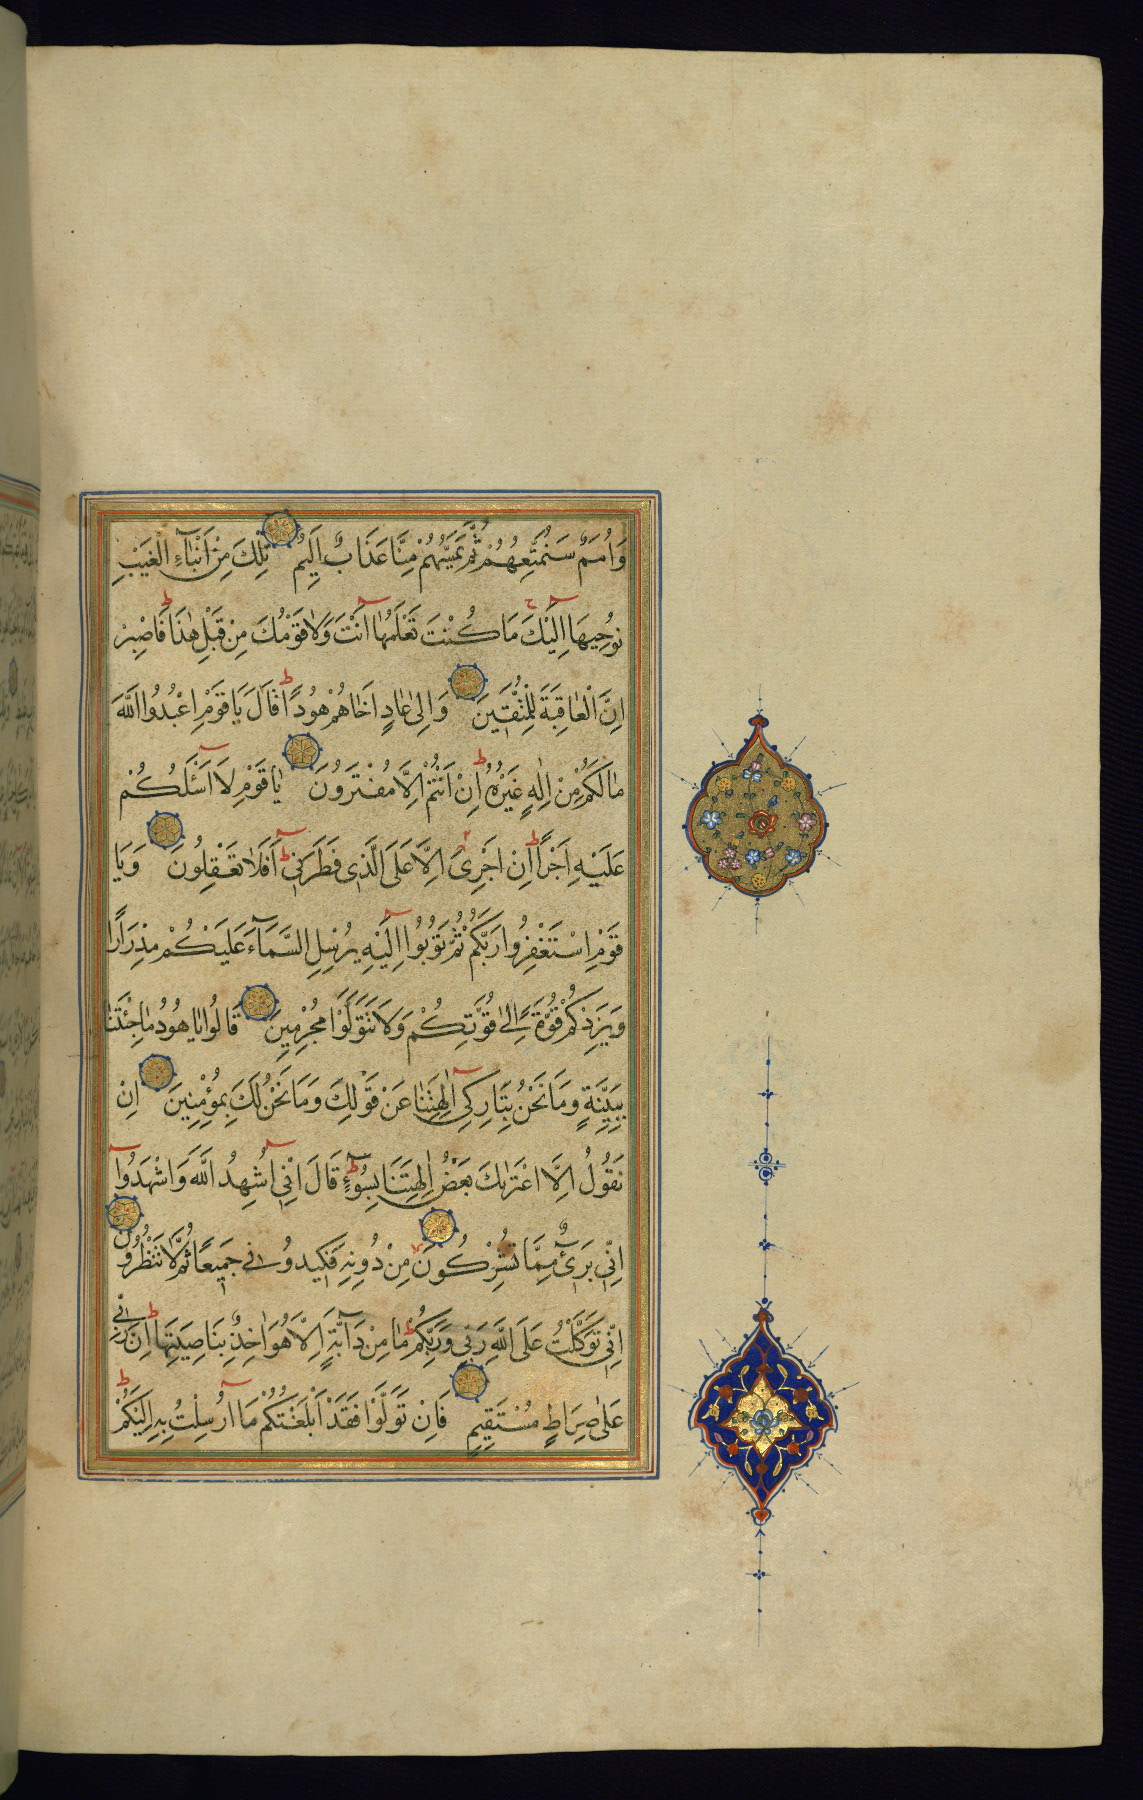 وَاُمَمٌ سَنُمَتِّعُهُمْ ثُمَّ يَمَسُّهُمْ مِنَّا عَذَابٌ اَلِيمٌ تِلْكَ مِنْ اَنْبَآءِ الْغَيْبِ
نُوحِيهَا اِلَيْكَ مَا كُنْتَ تَعْلَمُهَا اَنْتَ وَلَا قَوْمُكَ مِنْ قَبْلِ هٰذَا فَاصْبِرْ
اِنَّ الْعَاقِبَةَ لِلْمُتَّقِينَ وَاِلٰى عَادٍ اَخَاهُمْ هُودًا قَالَ يَا قَوْمِ اعْبُدُوا اللّٰهَ
مَا لَكُمْ مِنْ اِلٰهٍ غَيْرُهُ اِنْ اَنْتُمْ اِلَّا مُفْتَرُونَ يَا قَوْمِ لَا اَسْئَلُكُمْ
عَلَيْهِ اَجْرًا اِنْ اَجْرِىَ اِلَّا عَلَى الَّذِى فَطَرَنِى اَفَلَا تَعْقِلُونَ وَيَا
قَوْمِ اسْتَغْفِرُوا رَبَّكُمْ ثُمَّ تُوبُوا اِلَيْهِ يُرْسِلِ السَّمَآءَ عَلَيْكُمْ مِدْرَارًا
وَيَزِدْكُمْ قُوَّةً اِلٰى قُوَّتِكُمْ وَلَا تَتَوَلَّوْا مُجْرِمِينَ قَالُوا يَا هُودُ مَا جِئْتَنَا
بِبَيِّنَةٍ وَمَا نَحْنُ بِتَارِكِى اٰلِهَتِنَا عَنْ قَوْلِكَ وَمَا نَحْنُ لَكَ بِمُؤْمِنِينَ اِنْ
نَقُولُ اِلَّا اعْتَرٰيكَ بَعْضُ اٰلِهَتِنَا بِسُوٓءٍ قَالَ اِنِّى اُشْهِدُ اللّٰهَ وَاشْهَدُوا
اَنِّى بَرِىٓءٌ مِمَّا تُشْرِكُونَ مِنْ دُونِهِ فَكِيدُونِى جَمِيعًا ثُمَّ لَا تُنْظِرُونِ
اِنِّى تَوَكَّلْتُ عَلَى اللّٰهِ رَبِّى وَرَبِّكُمْ مَا مِنْ دَآبَّةٍ اِلَّا هُوَ اٰخِذٌ بِنَاصِيَتِهَا اِنَّ رَبِّى
عَلٰى صِرَاطٍ مُسْتَقِيمٍ فَاِنْ تَوَلَّوْا فَقَدْ اَبْلَغْتُكُمْ مَا اُرْسِلْتُ بِهِ اِلَيْكُمْ